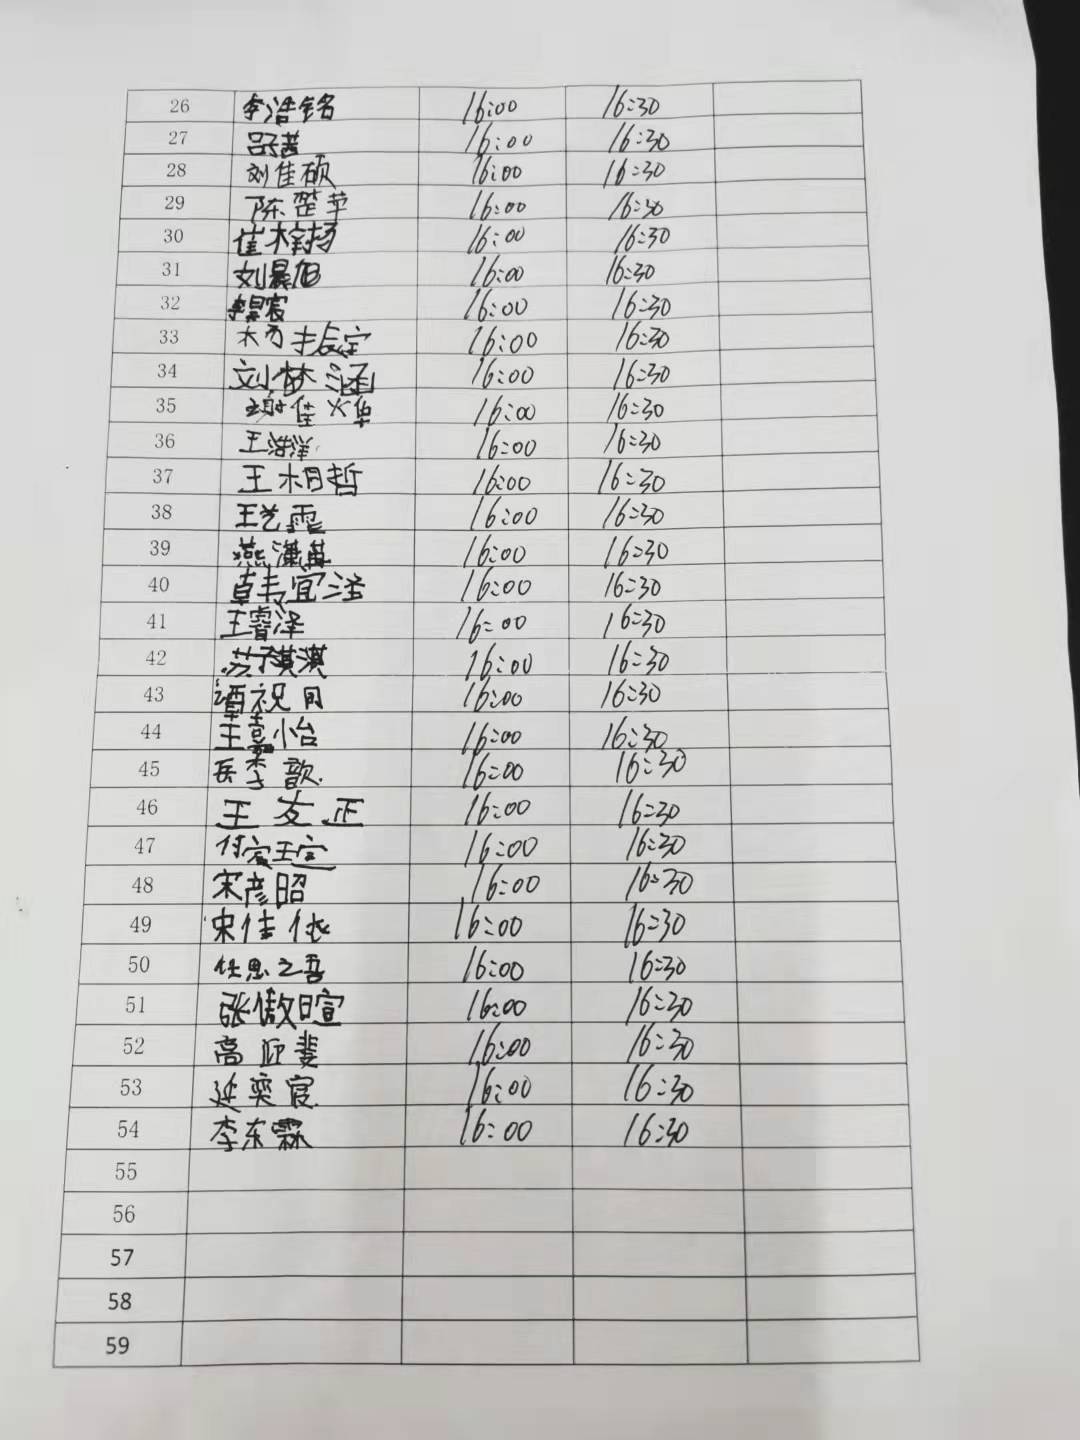 26 李浩铭 16:00 16:30
27 16:00 16:30
28 刘佳硕 16:00 16:30
29 陈罡苹 16:00 16:30
30 崔梓扬 16:00 16:30
31 刘晨旭 16:00 16:30
32 16:00 16:30
33 杨振宇 16:00 16:30
34 刘梦涵 16:00 16:30
35 谢佳烨 16:00 16:30
36 王浩洋 16:00 16:30
37 王相哲 16:00 16:30
38 王艺霏 16:00 16:30
39 燕潇苒 16:00 16:30
40 16:00 16:30
41 王睿泽 16:00 16:30
42 苏子淇 16:00 16:30
43 16:00 16:30
44 王嘉怡 16:00 16:30
45 岳季歆 16:00 16:30
46 王友正 16:00 16:30
47 16:00 16:30
48 宋彦昭 16:00 16:30
49 宋佳依 16:00 16:30
50 任思之吾 16:00 16:30
51 张傲暄 16:00 16:30
52 高亚斐 16:00 16:30
53 延奕宸 16:00 16:30
54 李东霖 16:00 16:30
55
56
57
58
59